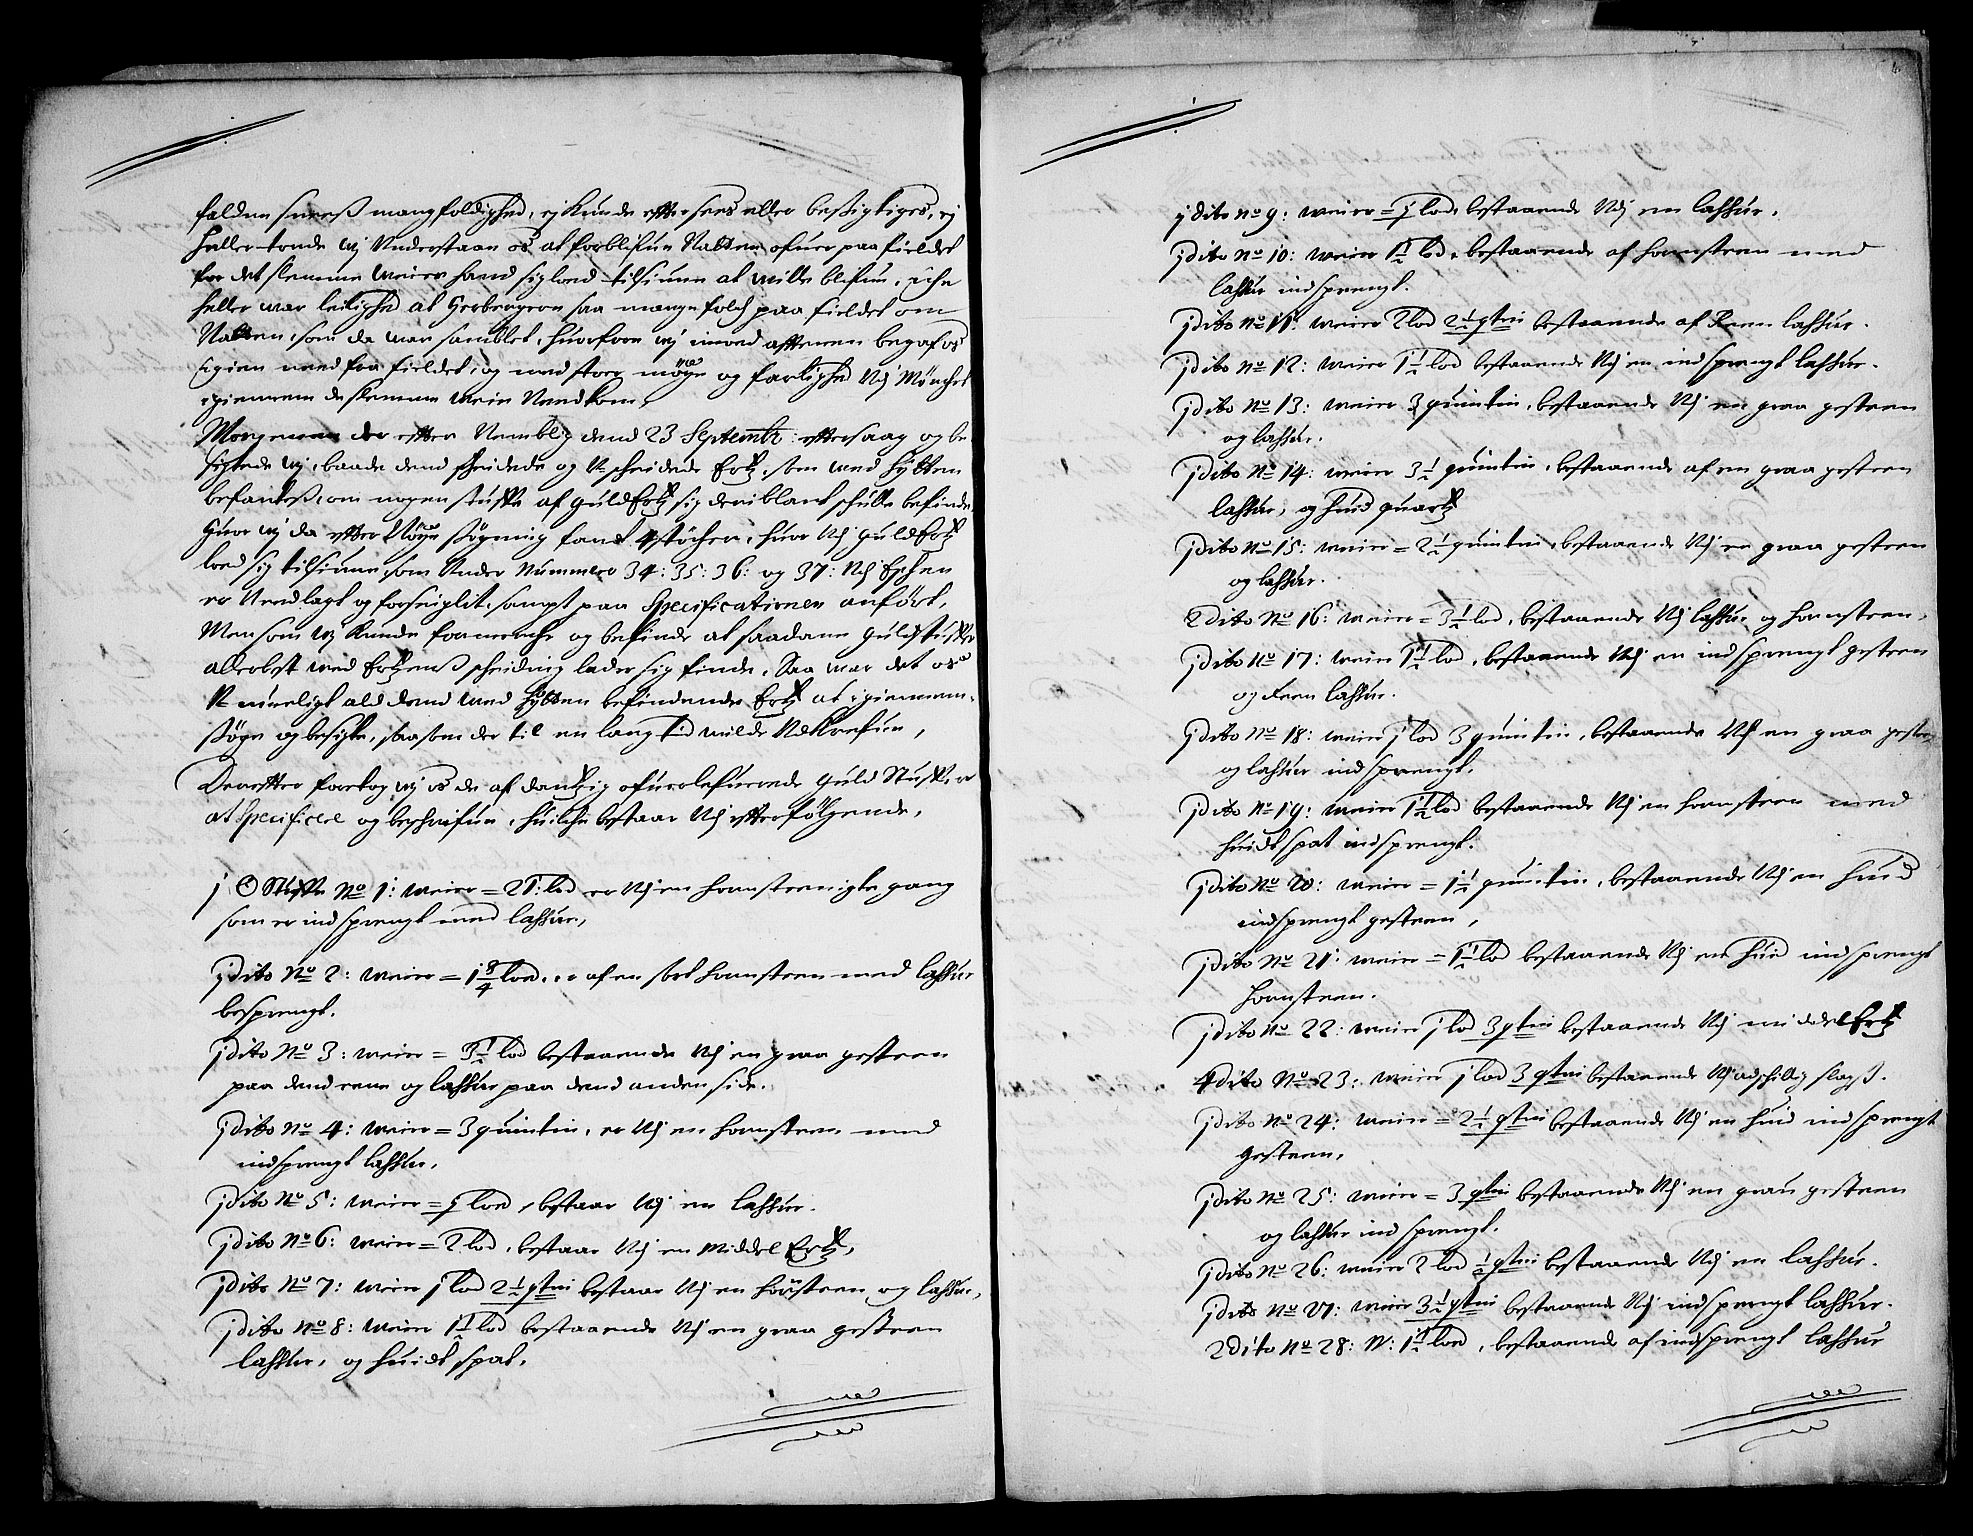 faldne sneeß mangfoldighed, ej kunde effter sees eller besigtiges, ej
heller torde wj Understaa os at forblifue Natten ofuer paa fieldet
for det slemme Weier hand sig loed tilsiune at wille blifue, iche
heller war leilighed at Herbergere saa mange folch paa fieldet om
Natten, som da war samblet, huorfore wj imod afftenen begaf os
igien need fra fieldet, og med stoer møye og farlighed
igiennem de slemme Weie Needkom,
Morgenen der effter Nemblig dend 23 Septembr: effterlaag og be
sigtede wj, baade dend scheidede og Uscheidede Ertz, som wed Hytten
befantes, om nogen stuffe af guld Ertz sig deriblant schulle befinde
Huor wj da effter støre søgning fant 4 støcher, huor Udj guld Ertz
loed sig tilsiune, som Under Nummero 34: 35: 36: og 37: Udj Eschen
er Needlagt og forseiglit, sampt paa Specificationen anført,
Men som wj kunde fornemme og befinde at saadane guldstuffer
allerbest wed Ertzens scheiding lader sig finde, Saa war det os
Umueligt ald dend wed Hytten befindende Ertz at igiennem
søge og besigte, saasom der til en lang tid wilde Udkrefue,
Dereffter foretog wj os de af dantzig ofuerlefuerede guld Stuffer
at Specificere og beschrifue, huilche bestaar Udj effterfølgende,
j ☉ Stuffe No 1: weier = 21: lod er Udj en hornstenigte gang
som er indsprengt med lassur,
j dito No 2: weier = 1 3/4 lod, er af en sort hornsteen med lassur
besprengt.
j dito No 3: weier = 3 1/2 lod bestaaende Udj en graa gesteen
paa dend eene og lassur paa dend anden side.
j dito No 4: weier = 3 quintin, er Udj en hornsteen med
indsprengt lassur,
j dito No 5: weier = j lod, bestaar Udj en lassur.
j dito No 6: weier = 2 lod, bestaar Udj en middel Ertz,
j dito No 7: weier j lod 2 1/2 qtin bestaar Udj en hornsteen og lassur,
j dito No 8: weier 1 1/2 lod bestaaende Udj en graa gesteen
lassur, og huidt spat.
j dito No 9: weier = j lod, bestaaende Udj en lassur.
j dito No 10: weier 1 1/2 lod, bestaaende af hornsteen med
lassur indsprengt.
j dito No 11: weier 2 lod 2 1/2 qtin bestaaende af Reen lassur.
j dito No 12: weier 1 1/2 lod bestaaende Udj en indsprengt lassur.
j dito No 13: weier 3 quintin, bestaaende Udj en graa gesteen
og lassur.
j dito No 14: weier 3 1/2 quintin, bestaaende af en graa gesteen
lassur, og huid quartz
j dito No 15: weier = 2 1/2 quintin, bestaaende Udj en graa gesteen
og lassur.
2 dito No 16: weier = 3 1/2 lod, bestaaende Udj lassur og hornsteen,
j dito No 17: weier 1 1/2 lod, bestaaende Udj en indsprengt gesteen
og Reen lassur.
j dito No 18: weier j lod 3 quintin, bestaaende Udj en graa gesteen
og lassur indsprengt.
j dito No 19: weier 1 1/2 lod bestaaende Udj en hornsteen med
huidt spat indsprengt.
j dito No 20: weier = 1 1/2 quintin, bestaaende Udj en huid
indsprengt gesteen,
j dito No 21: weier = 1 1/2 lod bestaaende Udj en huid indsprengt
hornsteen.
j dito No 22: weier j lod 3 qtin bestaaende Udj middel Ertz
4 dito No 23: weier j lod 3 qtin bestaaende Udj adschillig slags.
j dito No 24: weier = 2 1/2 qtin bestaaende Udj en huid indsprengt
gesteen,
j dito No 25: weier = 3 qtin bestaaende Udj en graa gesteen
og lassur indsprengt.
j dito No 26: weier 2 lod 1/2 qtin bestaaende Udj en lassur.
j dito No 27: weier 3 1/2 qtin bestaaende Udj indsprengt lassur.
2 dito No 28: W: 1 1/2 lod, bestaaende af indsprengt lassur